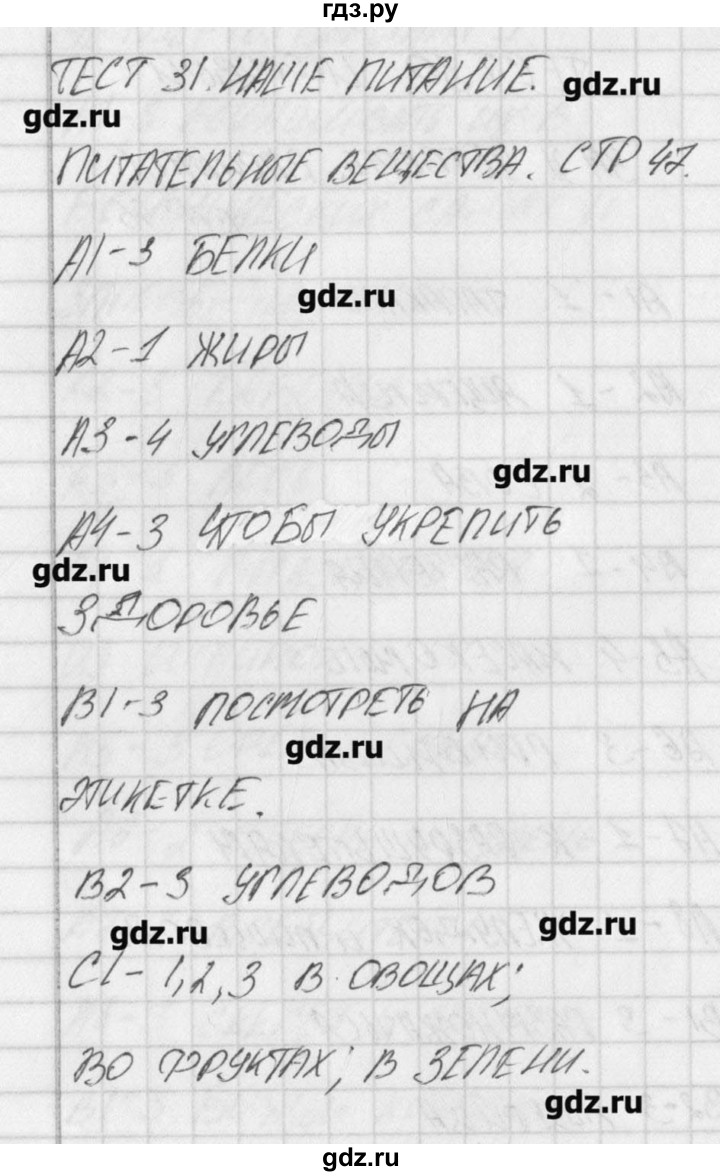 гдз.ру
ТЕСТ 31. НАШЕ ПИТАНИЕ.
gdz.ru
gdz.ru
ПИТАТЕЛЬНЫЕ ВЕЩЕСТВА. СТР 47.
А1-3 БЕЛКИ
gdz.ru
А2-1 ЖИРЫ
А3-4 УГЛЕВОДЫ
gdz.ru
А4-3 ЧТОБЫ УКРЕПИТЬ
gdz.ru
ЗДОРОВЬЕ
В1-3 ПОСМОТРЕТЬ НА
gdz.ru
ЭТИКЕТКЕ.
В2-3 УГЛЕВОДОВ
gdz.ru
gdz.ru
С1-1,2,3 В ОВОЩАХ;
ВО ФРУКТАХ; В ЗЕЛЕНИ.
gdz.ru
gdz.ru